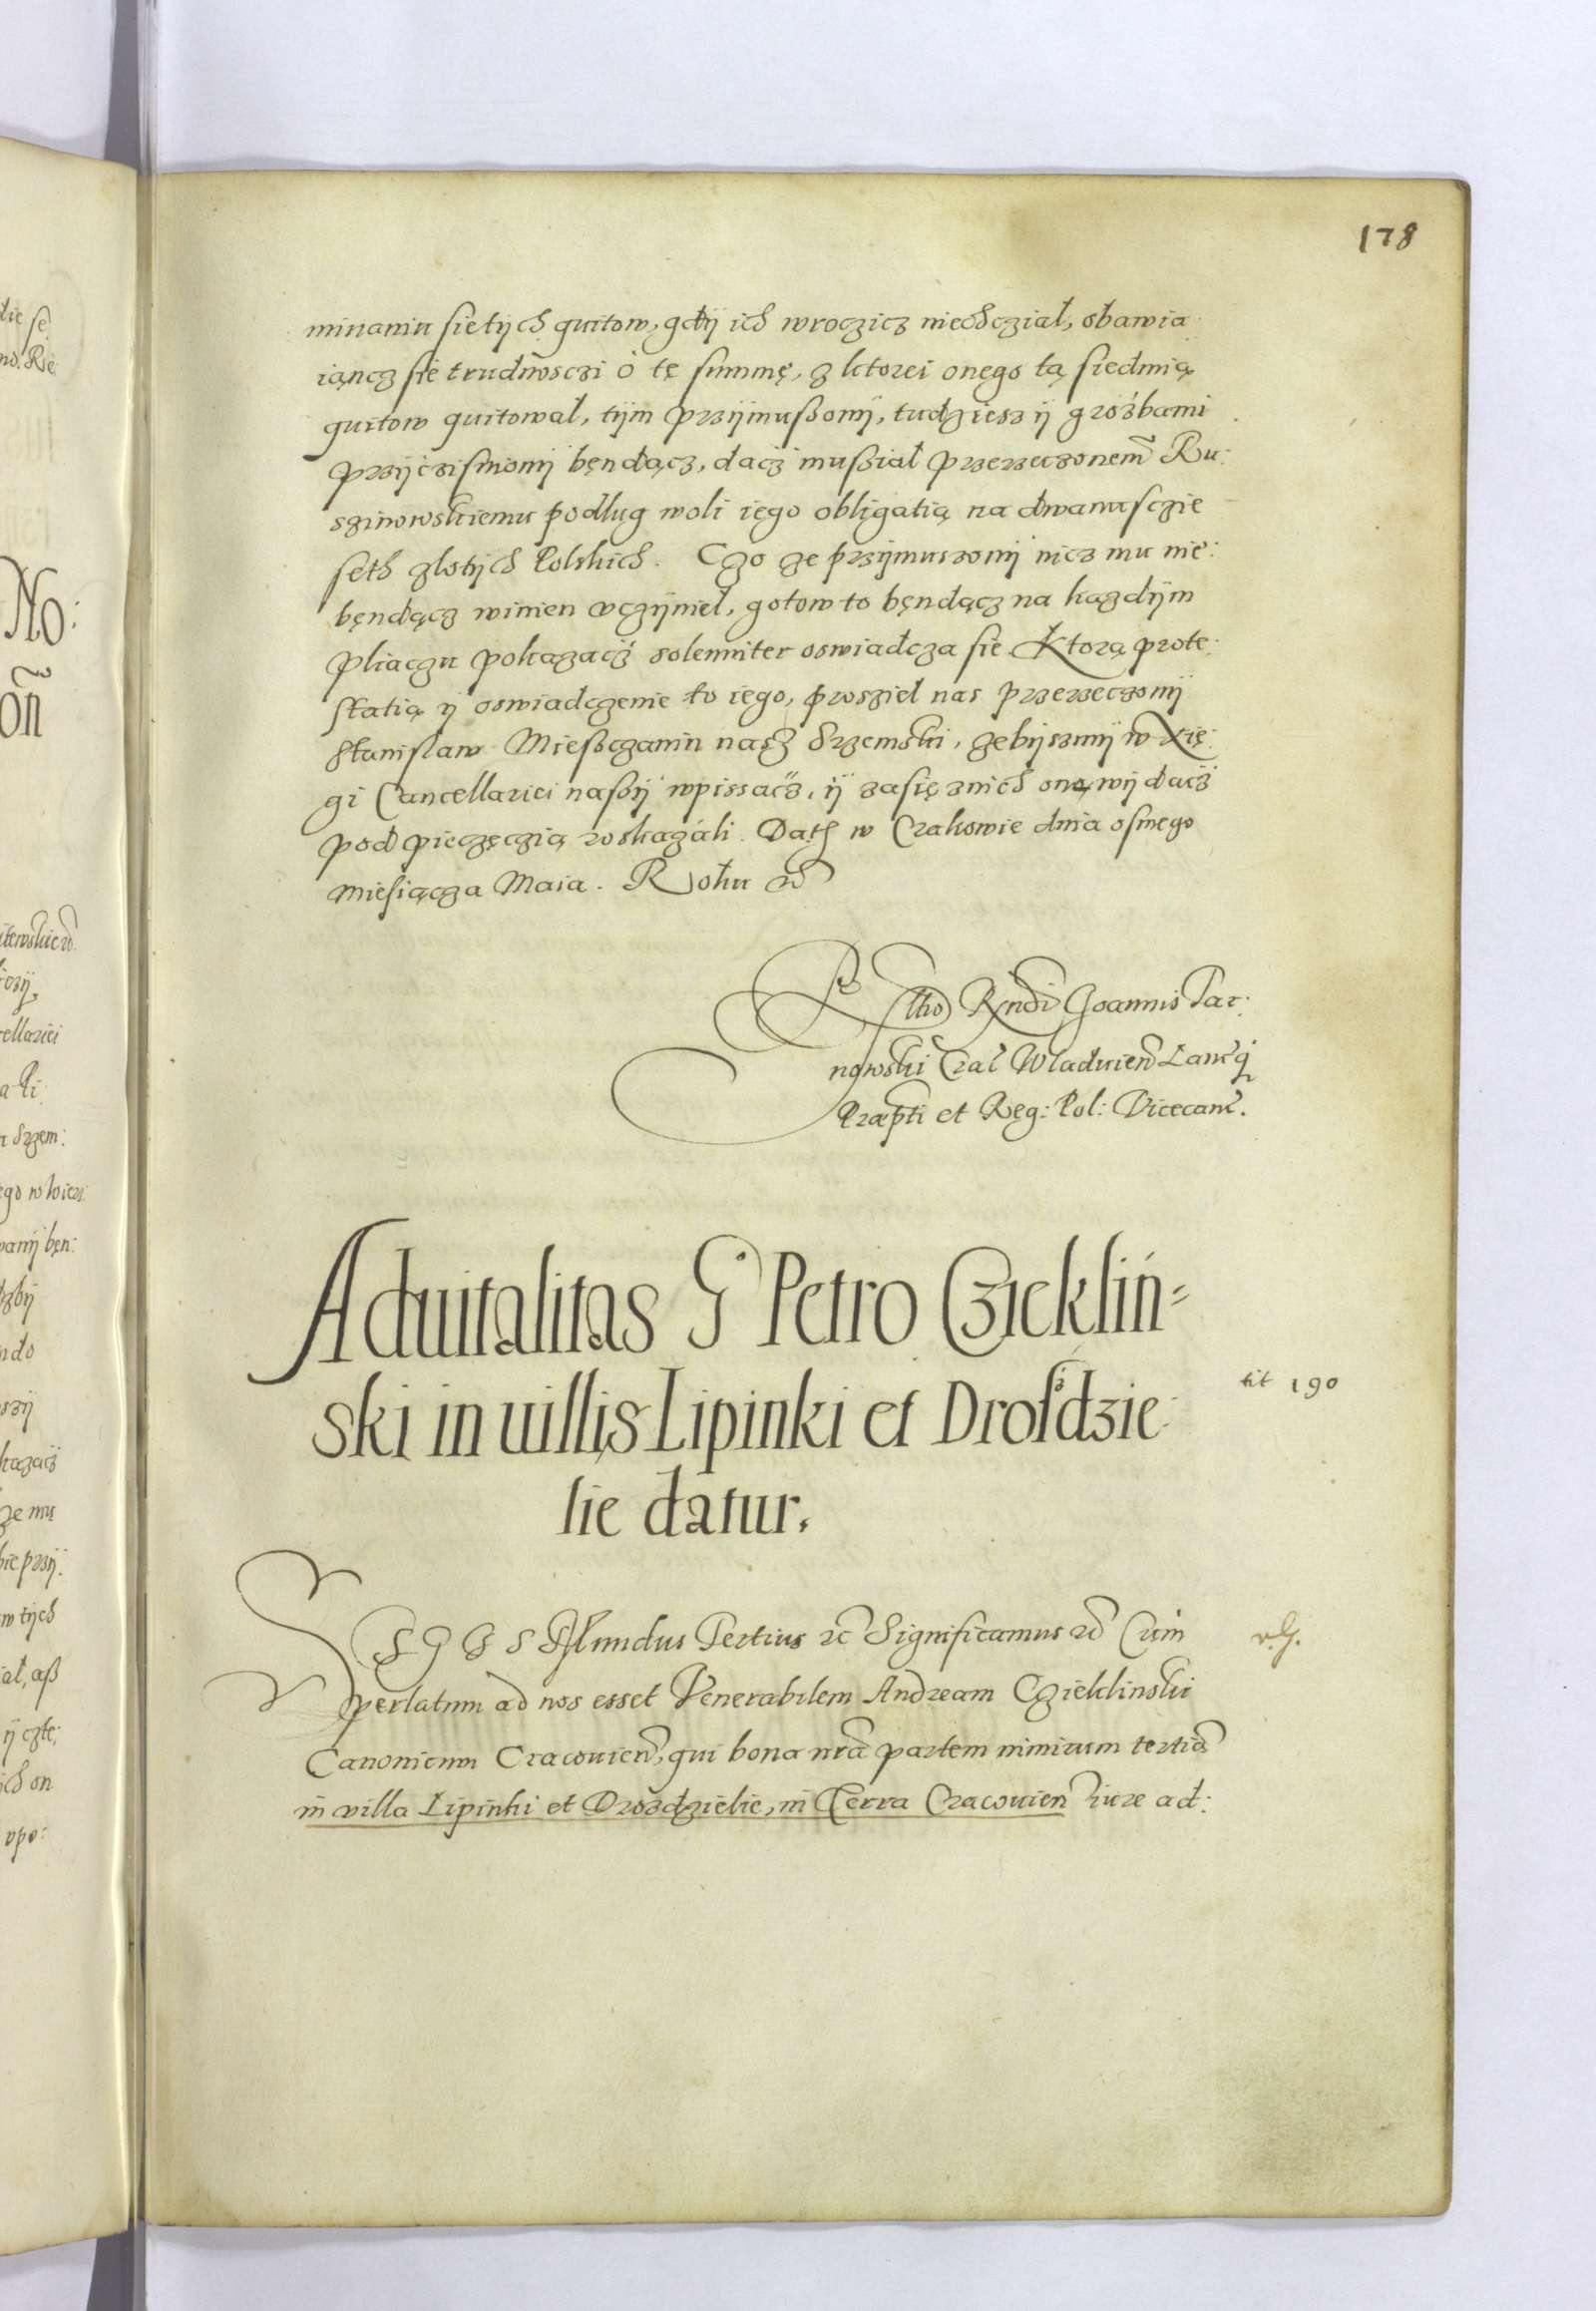 178
minaniu sie tych quitow, gdÿ ich wroczicz niechcział, obawia:
iąncz sie trudnosczi o tę summę, z ktorei onego tą siedmią
quitow quitował, tÿm przÿmuszonÿ, tudziesz ÿ grozbami
przÿczisnionÿ będącz, dacz musział przerzeczonem̃ Ru:
szinowskiemu podlug woli iego obligatią na dwanusczie
seth zlotÿch Polskich. Czo ze przÿmuszonÿ nicz mu nie:
będącz winien vczÿniel, gotow to będącz na kazdÿm
pliaczu pokazacz solenniter oswiadcza sie. Ktorą prote:
statią ÿ oswiadczenie to iego, prosziel nas przerzeczonÿ
Stanislaw Miesczanin nasz Srzemski, zebÿszmÿ w Xię:
gi Cancellariei naszÿ wpissacz, ÿ zasię znich oną wÿdacz
pod pieczęczią roskazáli. Dath w Crakowie dnia osmego
miesiącza Maia. Roku
Rñdi Joannis Tar:
nowski Cral Wladuieñ Lanc q
Præpti et Reg: Pol: Vicecanc.
Aduitalitas G Petro Cziekliń=
ski in uillis Lipinki et Drosdzie:
lie datur.
tit 190
SIGISmundus Tertius etc Significamus Cum
perlatum ad nos esset Venerabilem Andream Czieklinski
Canonicum Cracouieñ, qui bona nrã partem nimirum tertiã
in villa Lipinki et Drozdzielie, in Terra Cracouieñ iure ad: